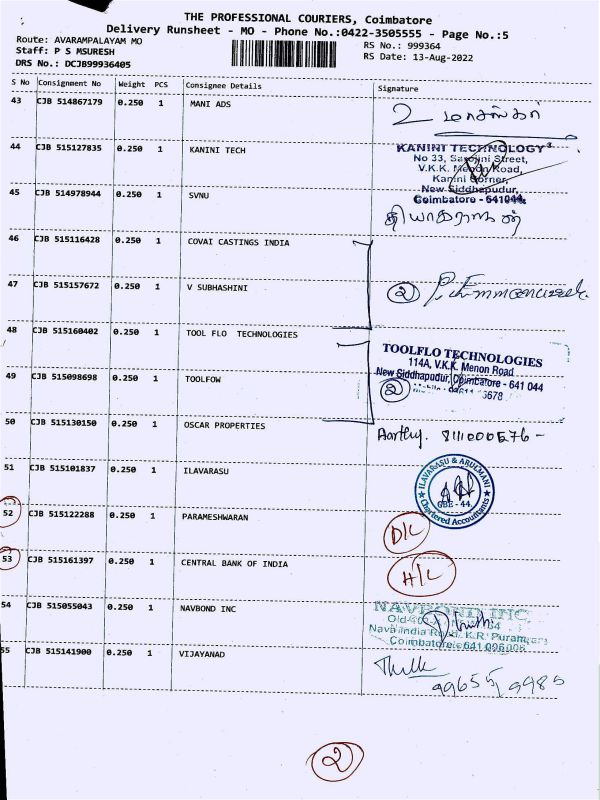 THE PROFESSIONAL COURIERS, Coimbatore
Delivery Runsheet - MO - Phone No.:0422-3505555 - Page No.:5
Route: AVARAMPALAYAM MO
RS No.: 999364
Staff: P S MSURESH
RS Date: 13-Aug-2022
DRS No.: DCJB99936405
S No Consignment No Weight PCS Consignee Details Signature
43 CJB 514867179 0.250 1 MANI ADS
2
44 CJB 515127835 0.250 1 KANINI TECH
KANINI TECHNOLOGY
No 33, Sarojini Street,
V.K.K. Menon Road,
Kanini Corner,
New Siddhapudur,
Coimbatore - 641044.
45 CJB 514978944 0.250 1 SVNU
தியாகராஜன்
46 CJB 515116428 0.250 1 COVAI CASTINGS INDIA
47 CJB 515157672 0.250 1 V SUBHASHINI
2
48 CJB 515160402 0.250 1 TOOL FLO TECHNOLOGIES
TOOLFLO TECHNOLOGIES
114A, V.K.K. Menon Road
New Siddhapudur, Coimbatore - 641 044
49 CJB 515098698 0.250 1 TOOLFOW
2
5678
50 CJB 515130150 0.250 1 OSCAR PROPERTIES
Aarthy.
51 CJB 515101837 0.250 1 ILAVARASU
ILAVARASU & ARULMANI
CBE - 44.
Chartered Accountants
52 CJB 515122288 0.250 1 PARAMESHWARAN
D/L
53 CJB 515161397 0.250 1 CENTRAL BANK OF INDIA
H/L
54 CJB 515055043 0.250 1 NAVBOND INC
NAVBOND INC.
Navaindia Road, K.R. Puram
Coimbatore - 641 006
55 CJB 515141900 0.250 1 VIJAYANAD
2